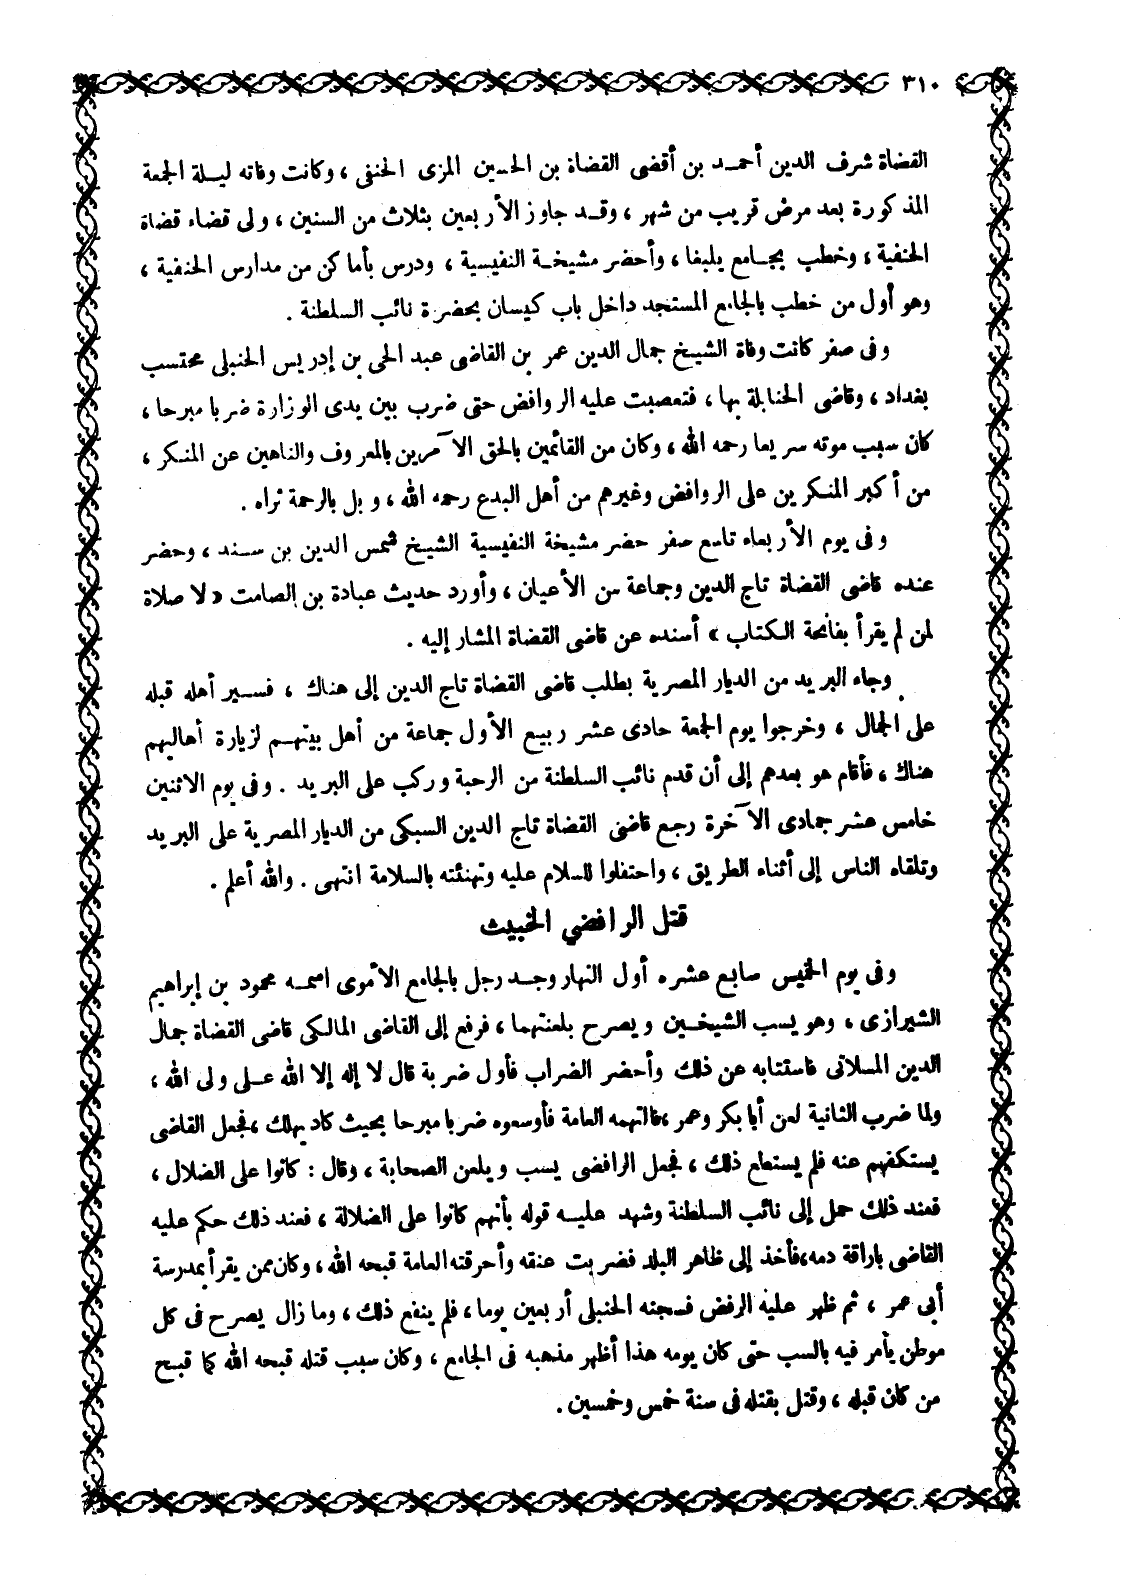 ٣١٠
القضاة شرف الدين أحمد بن أقضى القضاة بن الحسين المزى الحنفى ، وكانت وفاته ليلة الجمعة
المذكورة بعد مرض قريب من شهر ، وقد جاوز الأربعين بثلاث من السنين ، ولى قضاء قضاة
الحنفية ، وخطب بجامع يلبغا ، وأحضر مشيخة النفيسية ، ودرس بأماكن من مدارس الحنفية ،
وهو أول من خطب بالجامع المستجد داخل باب كيسان بحضرة نائب السلطنة .
وفى صفر كانت وفاة الشيخ جمال الدين عمر بن القاضى عبد الحى بن إدريس الحنبلى محتسب
بغداد ، وقاضى الحنابلة بها ، فتعصبت عليه الروافض حتى ضرب بين يدى الوزارة ضربا مبرحا ،
كان سبب موته سريعا رحمه الله ، وكان من القائمين بالحق الآمرين بالمعروف والناهين عن المنكر ،
من أكبر المنكرين على الروافض وغيرهم من أهل البدع رحمه الله ، وبل بالرحمة ثراه .
وفى يوم الأربعاء تاسع صفر حضر مشيخة النفيسية الشيخ شمس الدين بن سند ، وحضر
عنده قاضى القضاة تاج الدين وجماعة من الأعيان ، وأورد حديث عبادة بن الصامت « لا صلاة
لمن لم يقرأ بفاتحة الكتاب » أسنده عن قاضى القضاة المشار إليه .
وجاء البريد من الديار المصرية بطلب قاضى القضاة تاج الدين إلى هناك ، فسير أهله قبله
على الجمال ، وخرجوا يوم الجمعة حادى عشر ربيع الأول جماعة من أهل بيتهم لزيارة أهاليهم
هناك ، فأقام هو بعدهم إلى أن قدم نائب السلطنة من الرحبة وركب على البريد . وفى يوم الاثنين
خامس عشر جمادى الآخرة رجع قاضى القضاة تاج الدين السبكى من الديار المصرية على البريد
وتلقاه الناس إلى أثناء الطريق ، واحتفلوا للسلام عليه وتهنئته بالسلامة انتهى . والله أعلم .
قتل الرافضي الخبيث
وفى يوم الخميس سابع عشره أول النهار وجد رجل بالجامع الأموى اسمه محمود بن إبراهيم
الشيرازى ، وهو يسب الشيخين ويصرح بلعنتهما ، فرفع إلى القاضى المالكى قاضى القضاة جمال
الدين المسلاتى فاستتابه عن ذلك وأحضر الضراب فأول ضربة قال لا إله إلا الله على ولى الله ،
ولما ضرب الثانية لعن أبا بكر وعمر ، فالتهمه العامة فأوسعوه ضربا مبرحا بحيث كاد يهلك ، فجعل القاضى
يستكفهم عنه فلم يستطع ذلك ، فجعل الرافضى يسب ويلعن الصحابة ، وقال : كانوا على الضلال ،
فعند ذلك حمل إلى نائب السلطنة وشهد عليه قوله بأنهم كانوا على الضلالة ، فعند ذلك حكم عليه
القاضى باراقة دمه ، فأخذ إلى ظاهر البلد فضربت عنقه وأحرقته العامة قبحه الله ، وكان ممن يقرأ بمدرسة
أبى عمر ، ثم ظهر عليه الرفض فسجنه الحنبلى أربعين يوما ، فلم ينفع ذلك ، وما زال يصرح فى كل
موطن يأمر فيه بالسب حتى كان يومه هذا أظهر مذهبه فى الجامع ، وكان سبب قتله قبحه الله كما قبح
من كان قبله ، وقتل بقتله فى سنة خمس وخمسين .